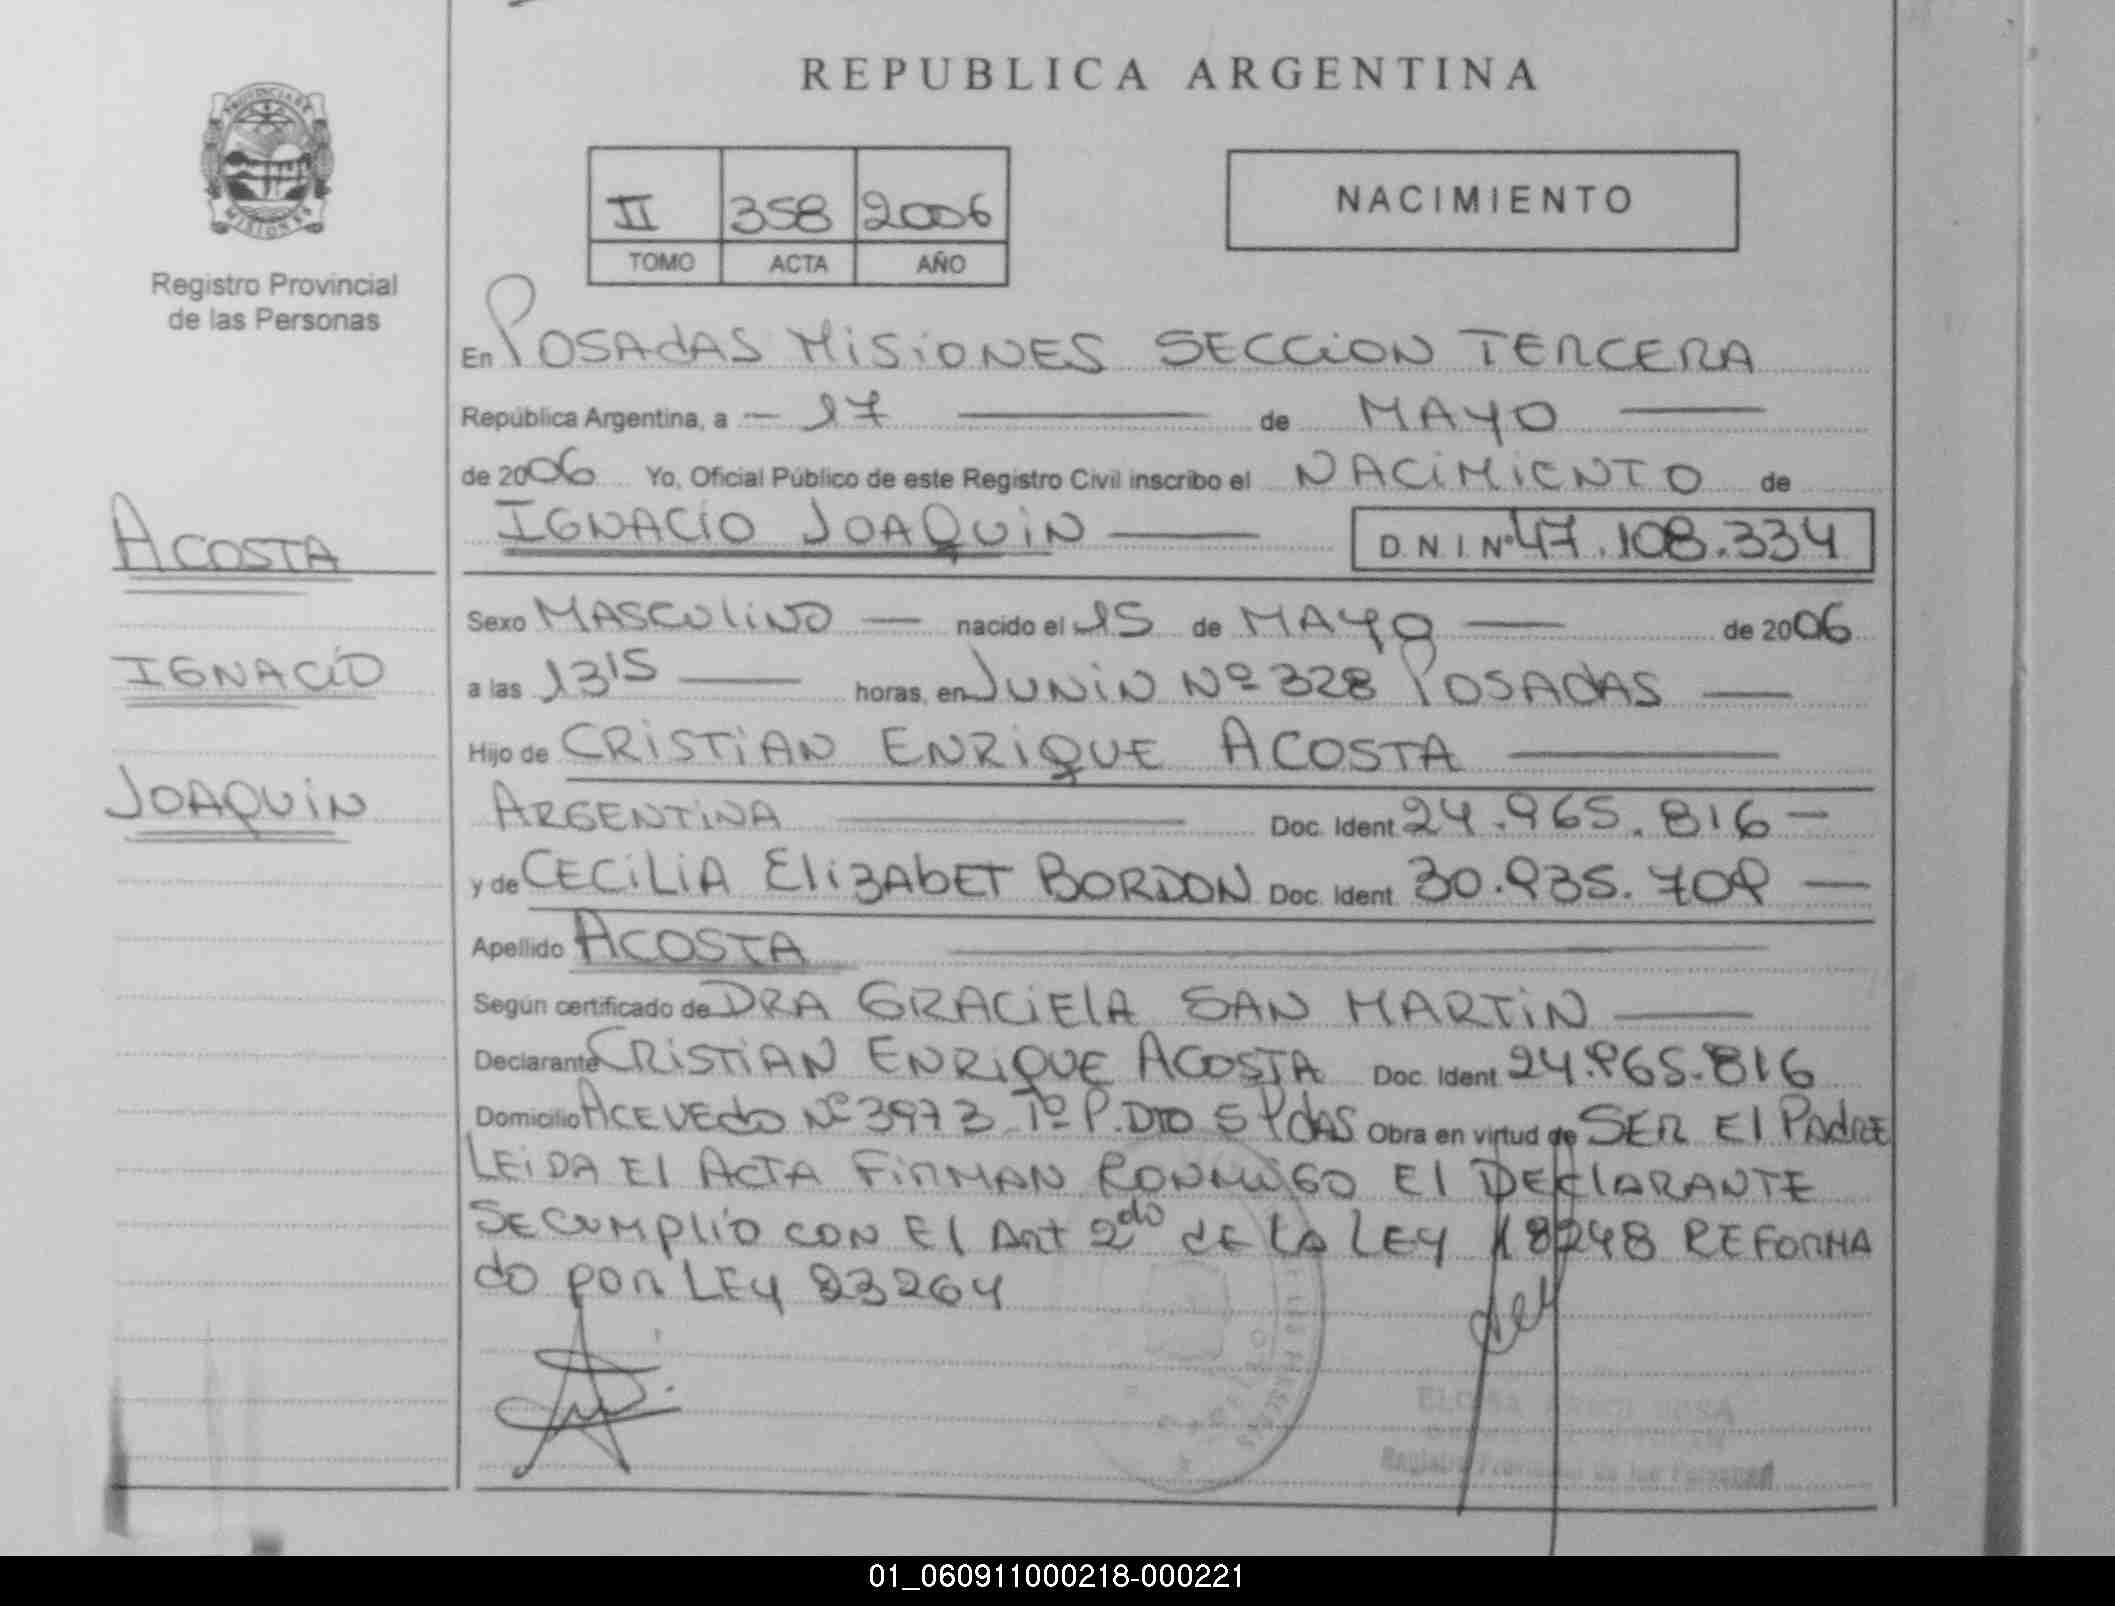 REPUBLICA ARGENTINA
PROVINCIA DE
MISIONES
Registro Provincial
de las Personas
II 358 2006
TOMO ACTA AÑO
NACIMIENTO
En POSADAS MISIONES SECCION TERCERA
República Argentina, a 17 de MAYO
de 2006 Yo, Oficial Público de este Registro Civil inscribo el NACIMIENTO de
IGNACIO JOAQUIN D.N.I. Nº 47.108.334
ACOSTA
IGNACIO
JOAQUIN
Sexo MASCULINO nacido el 15 de MAYO de 2006
a las 13 15 horas, en JUNIN Nº 328 POSADAS
Hijo de CRISTIAN ENRIQUE ACOSTA
ARGENTINA Doc. Ident. 24.965.816
y de CECILIA ELIZABET BORDON Doc. Ident. 30.935.709
Apellido ACOSTA
Según certificado de DRA GRACIELA SAN MARTIN
Declarante CRISTIAN ENRIQUE ACOSTA Doc. Ident. 24.965.816
Domicilio ACEVEDO Nº 3973 1º P. DTO 5 PDAS Obra en virtud de SER El PADRE
LEIDA El ACTA FIRMAN CONMIGO El DECLARANTE
SE CUMPLIO CON El Art 2do de LA LEY 18248 REFORMA
do por LEY 23264
Registro Provincial de las Personas
01_060911000218-000221